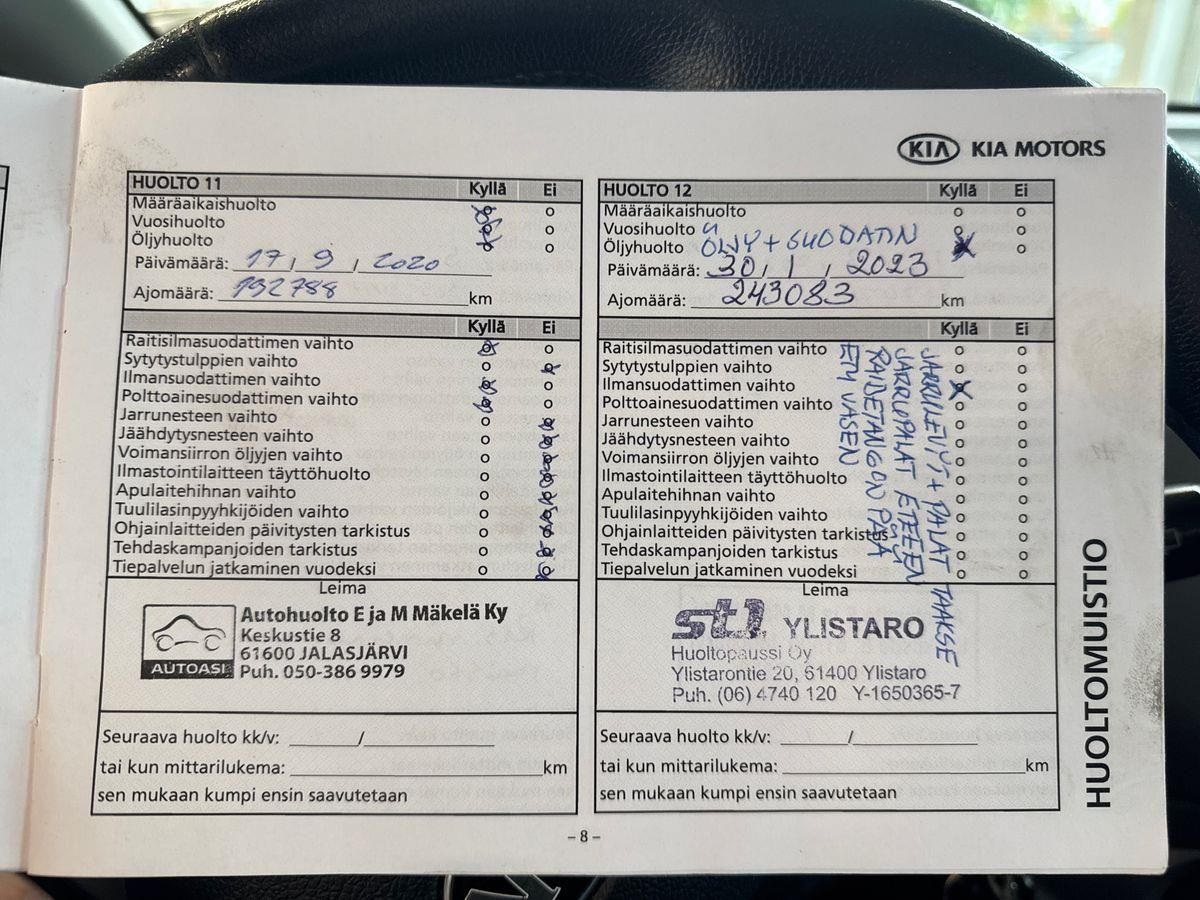 KIA KIA MOTORS
HUOLTO 11 Kyllä Ei
Määräaikaishuolto
Vuosihuolto
Öljyhuolto
Päivämäärä: 17 / 9 / 2020
Ajomäärä: 192788 km
Kyllä Ei
Raitisilmasuodattimen vaihto
Sytytystulppien vaihto
Ilmansuodattimen vaihto
Polttoainesuodattimen vaihto
Jarrunesteen vaihto
Jäähdytysnesteen vaihto
Voimansiirron öljyjen vaihto
Ilmastointilaitteen täyttöhuolto
Apulaitehihnan vaihto
Tuulilasinpyyhkijöiden vaihto
Ohjainlaitteiden päivitysten tarkistus
Tehdaskampanjoiden tarkistus
Tiepalvelun jatkaminen vuodeksi
Leima
AUTOASI
Autohuolto E ja M Mäkelä Ky
Keskustie 8
61600 JALASJÄRVI
Puh. 050-386 9979
Seuraava huolto kk/v: ______/____________
tai kun mittarilukema: ____________ km
sen mukaan kumpi ensin saavutetaan
HUOLTO 12 Kyllä Ei
Määräaikaishuolto
Vuosihuolto
Öljyhuolto ÖLJY + SUODATIN
Päivämäärä: 30 / 1 / 2023
Ajomäärä: 243083 km
Kyllä Ei
Raitisilmasuodattimen vaihto
Sytytystulppien vaihto
Ilmansuodattimen vaihto
Polttoainesuodattimen vaihto
Jarrunesteen vaihto
Jäähdytysnesteen vaihto
Voimansiirron öljyjen vaihto
Ilmastointilaitteen täyttöhuolto
Apulaitehihnan vaihto
Tuulilasinpyyhkijöiden vaihto
Ohjainlaitteiden päivitysten tarkistus
Tehdaskampanjoiden tarkistus
Tiepalvelun jatkaminen vuodeksi
JARRULEVYT + PALAT TAAKSE
JARRUPALAT ETEEN
RAIDETANGON PÄÄ
ETU VASEN
Leima
st1 YLISTARO
Huoltopaussi Oy
Ylistarontie 20, 61400 Ylistaro
Puh. (06) 4740 120 Y-1650365-7
Seuraava huolto kk/v: ______/____________
tai kun mittarilukema: ____________ km
sen mukaan kumpi ensin saavutetaan
HUOLTOMUISTIO
– 8 –